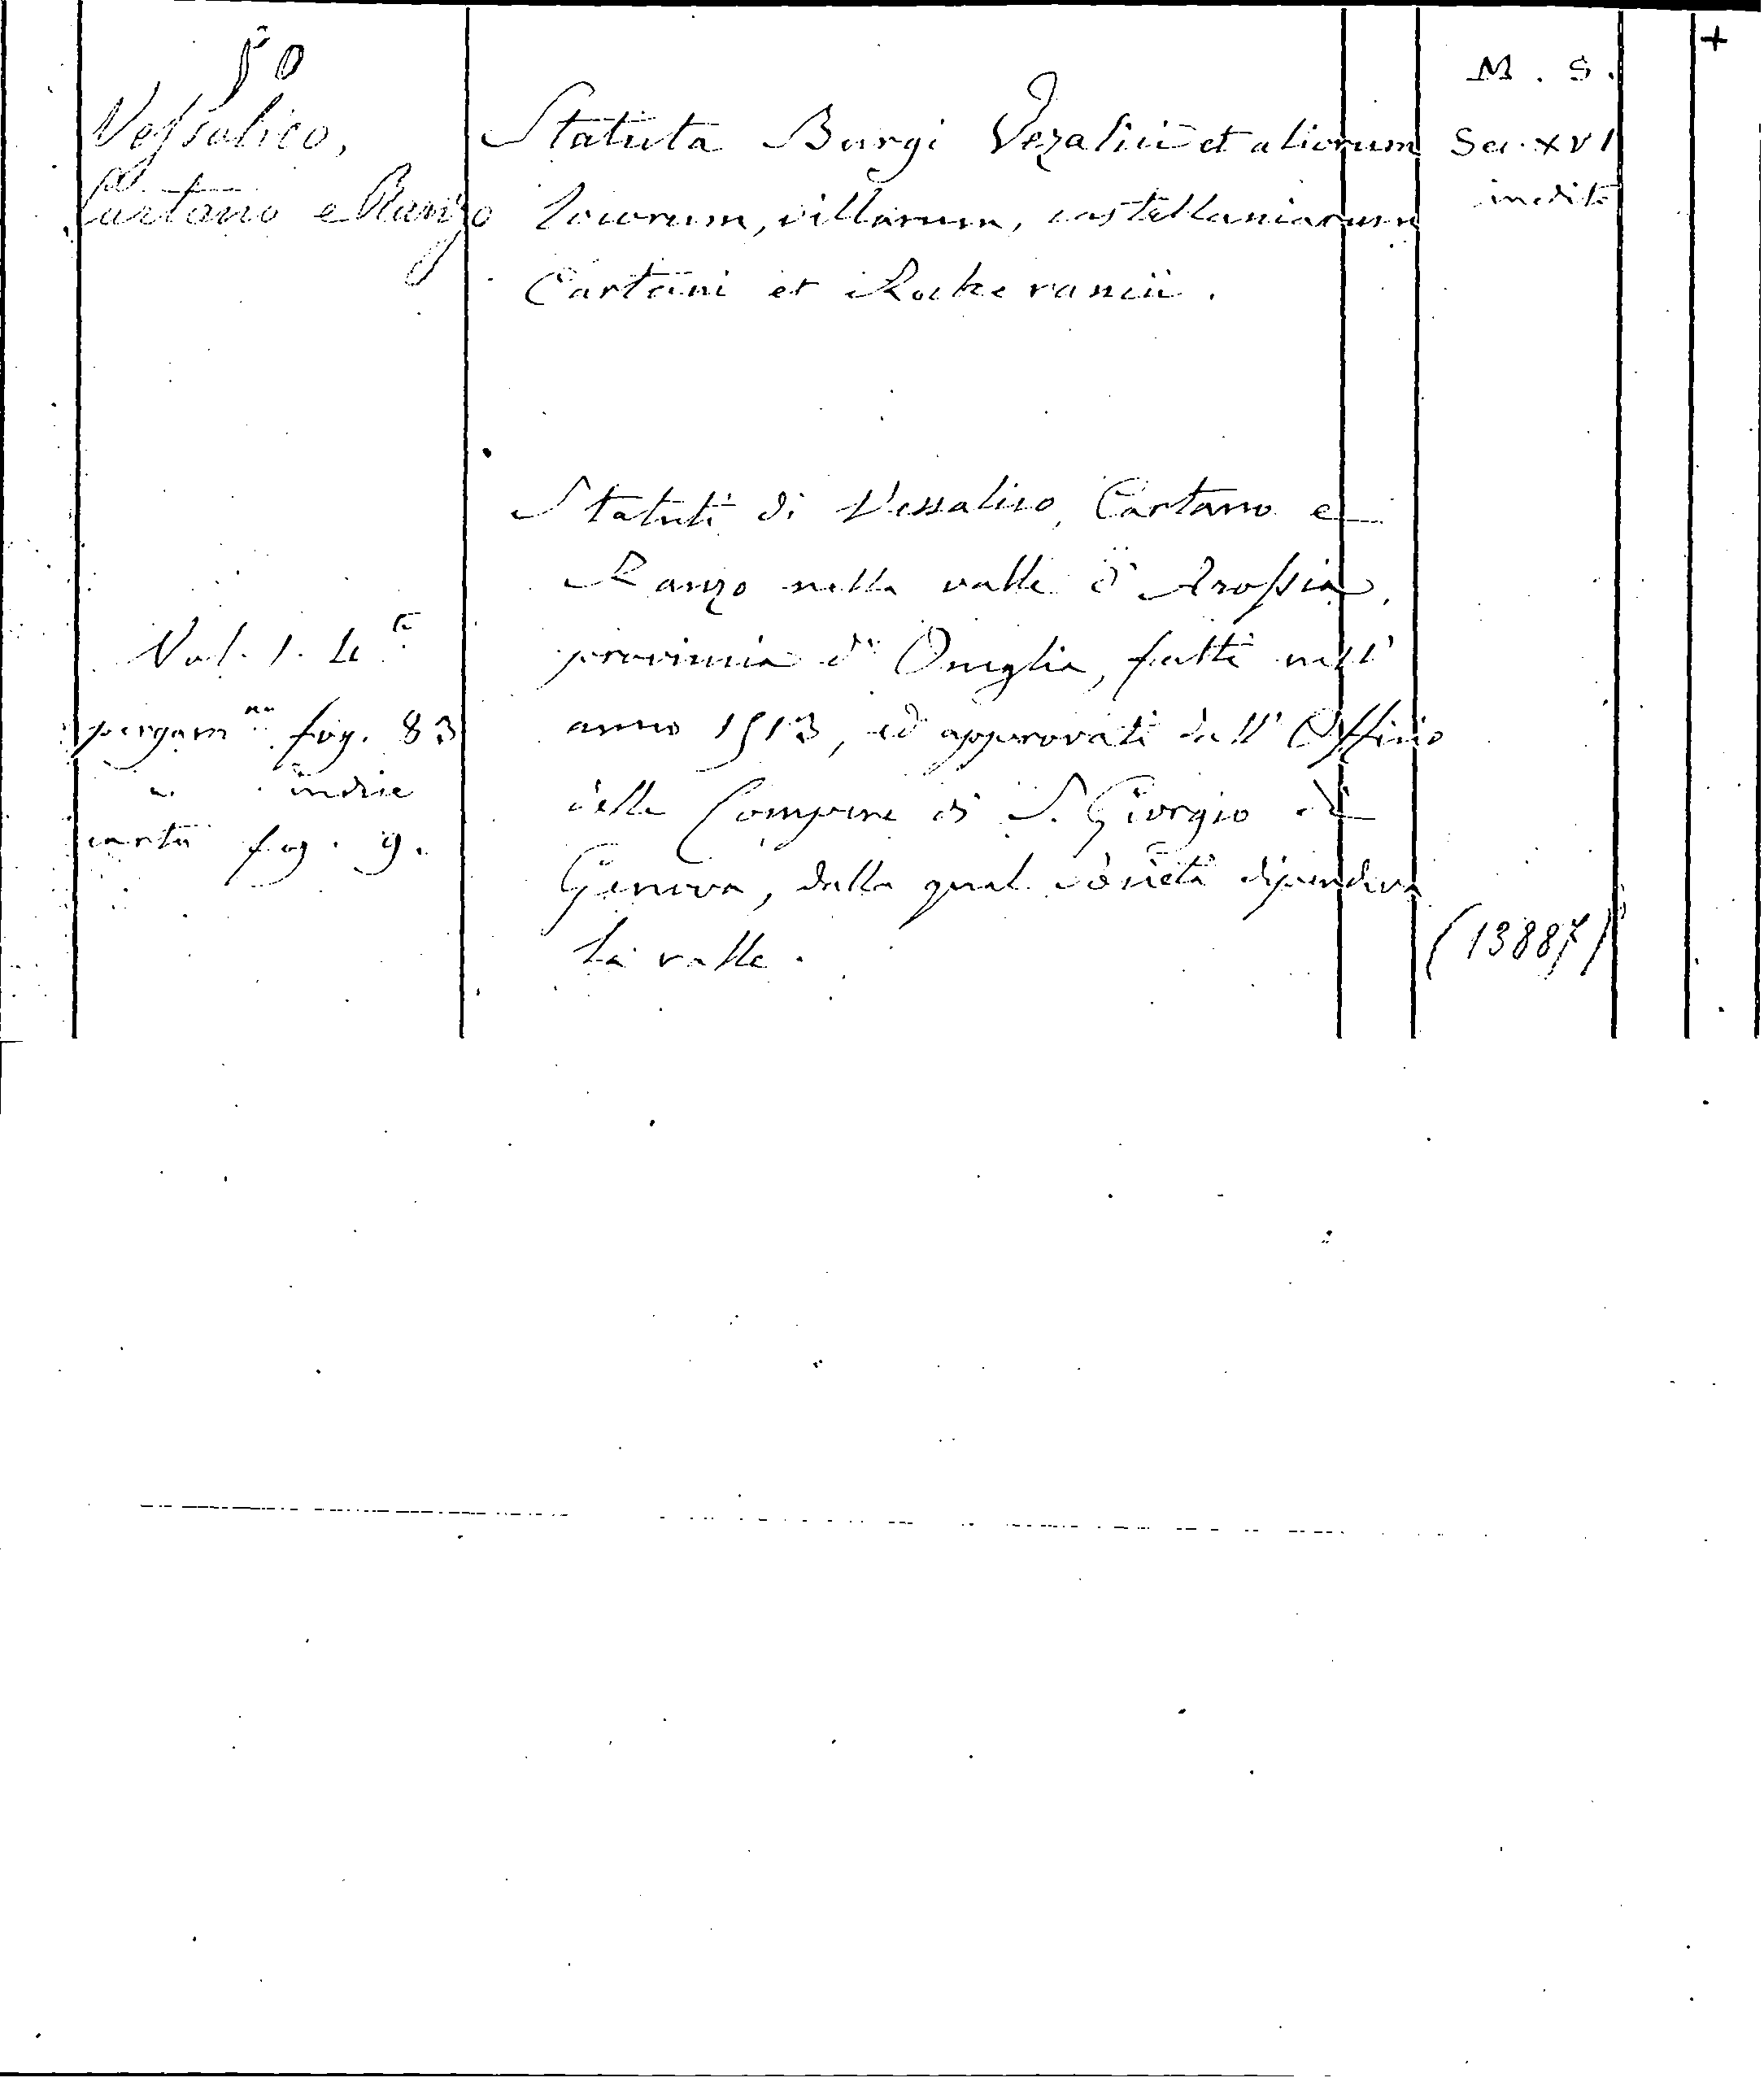 50
Vessalico,
Cartano e Ranzo
Statuta Burgi Vezalicii et aliorum
locorum, villarum, castellaniarum
Cartani et Rocheranicii.
M. S.
Sec. XVI
inedito
+
Statuti di Vessalico, Cartano e
Ranzo nella valle d'Arossia,
provincia d'Oneglia, fatti nell'
anno 1513, ed approvati dall'Officio
delle Compere di S. Giorgio di
Genova, dalla qual società dipendeva
la valle.
Vol. 1. 4.to
pergam.no fog. 83
" indice
carta fog. 9.
(13887)